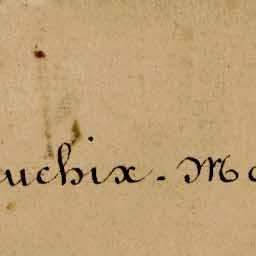 uchix. Mo